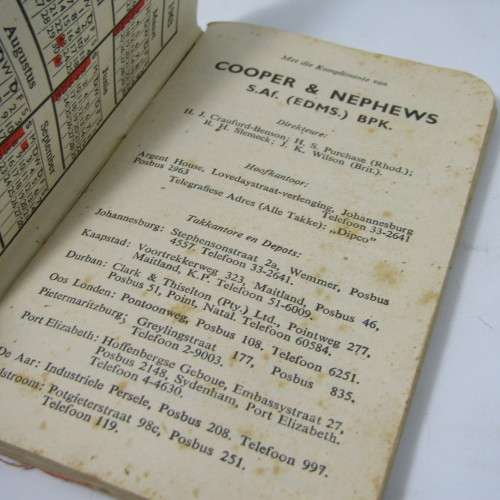 Augustus
Met die Komplimente van
COOPER & NEPHEWS
S.Af. (EDMS.) BPK.
Direkteure:
H. J. Craufurd-Benson; H. S. Purchase (Rhod.);
R. H. Slemeck; J. K. Wilson (Brit.).
Hoofkantoor:
Argent House, Lovedaystraat-verlenging, Johannesburg
Posbus 2963 Telefoon 33-2641
Telegrafiese Adres (Alle Takke): „Dipco”
Takkantore en Depots:
Johannesburg: Stephensonstraat 2a, Wemmer, Posbus
4557. Telefoon 33-2641.
Kaapstad: Voortrekkerweg 323, Maitland, Posbus 46,
Maitland, K.P. Telefoon 51-6009.
Durban: Clark & Thiselton (Pty.) Ltd., Pointweg 277,
Posbus 51, Point, Natal. Telefoon 60584.
Oos Londen: Pontoonweg, Posbus 108. Telefoon 6251.
Pietermaritzburg: Greylingstraat 177, Posbus 835.
Telefoon 2-9003.
Port Elizabeth: Hoffenbergse Geboue, Embassystraat 27,
Posbus 2148, Sydenham, Port Elizabeth.
Telefoon 4-4630.
De Aar: Industriële Persele, Posbus 208. Telefoon 997.
lstroom: Potgieterstraat 98c, Posbus 251.
Telefoon 119.